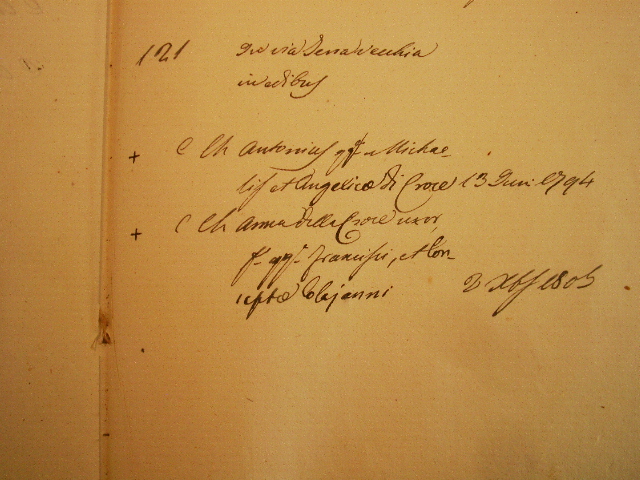 121 In via Terravecchia
in edibus
+ C Ch Antonius qq.m Michae-
lis et Angelicæ di Croce 13 Juni 1794
+ C Ch Anna della Croce uxor,
f.a qq.m Francisci, et Con-
ceptæ Colajanni 2 Xbris 1805